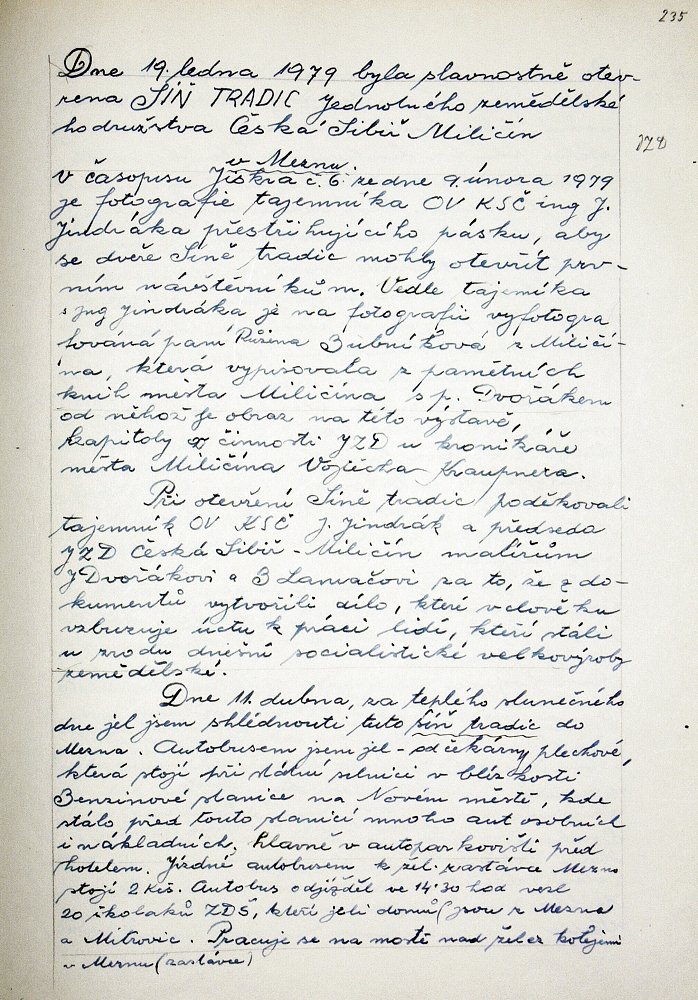 235
Dne 19. ledna 1979 byla slavnostně otev-
řena SÍŇ TRADIC Jednotného zemědělské
ho družstva Česká Sibiř Miličín
v Meznu.
V časopisu Jiskra č. 6 ze dne 9. února 1979
je fotografie tajemníka OV KSČ ing J.
Jindráka přestřihujícího pásku, aby
se dveře Síně tradic mohly otevřít prv-
ním návštěvníkům. Vedle tajemíka
s Jng Jindráka je na fotografii vyfotogra
fováná paní Růžina Zubníková z Miličí-
na, která vypisovala z pamětních
knih města Miličína s p. Dvořákem
od něhož je obraz na této výstavě,
kapitoly z činnosti JZD u kronikáře
města Miličína Vojtěcha Kraupnera.
Při otevření Síně tradic poděkovali
tajemník OV KSČ J. Jindrák a předseda
JZD Česká Sibiř - Miličín malířům
J Dvořákovi a Z za to, že z do-
kumentů vytvořili dílo, které v člověku
vzbuzuje úctu k práci lidí, kteří stáli
u zrodu dnešní socialistické velkovýroby
zemědělské.
Dne 11. dubna, za teplého slunečného
dne jel jsem shlédnouti tuto síň tradic do
Mezna. Autobusem jsem jel - od čekárny plechové,
která stojí při státní silnici v blízkosti
Benzinové stanice na Novém městě, kde
stálo před touto stanicí mnoho aut osobních
i nákladních. Hlavně v autoparkovišti před
hotelem. Jízdné autobusem k žel. zastávce Mezno
stojí 2 Kčs. Autobus odjížděl ve 14·30 hod vezl
20 školáků ZDŠ, kteří jeli domů (jsou z Mezna
a Mitrovic. Pracuje se na mostě nad želez kolejemi
v Meznu (zastávce)